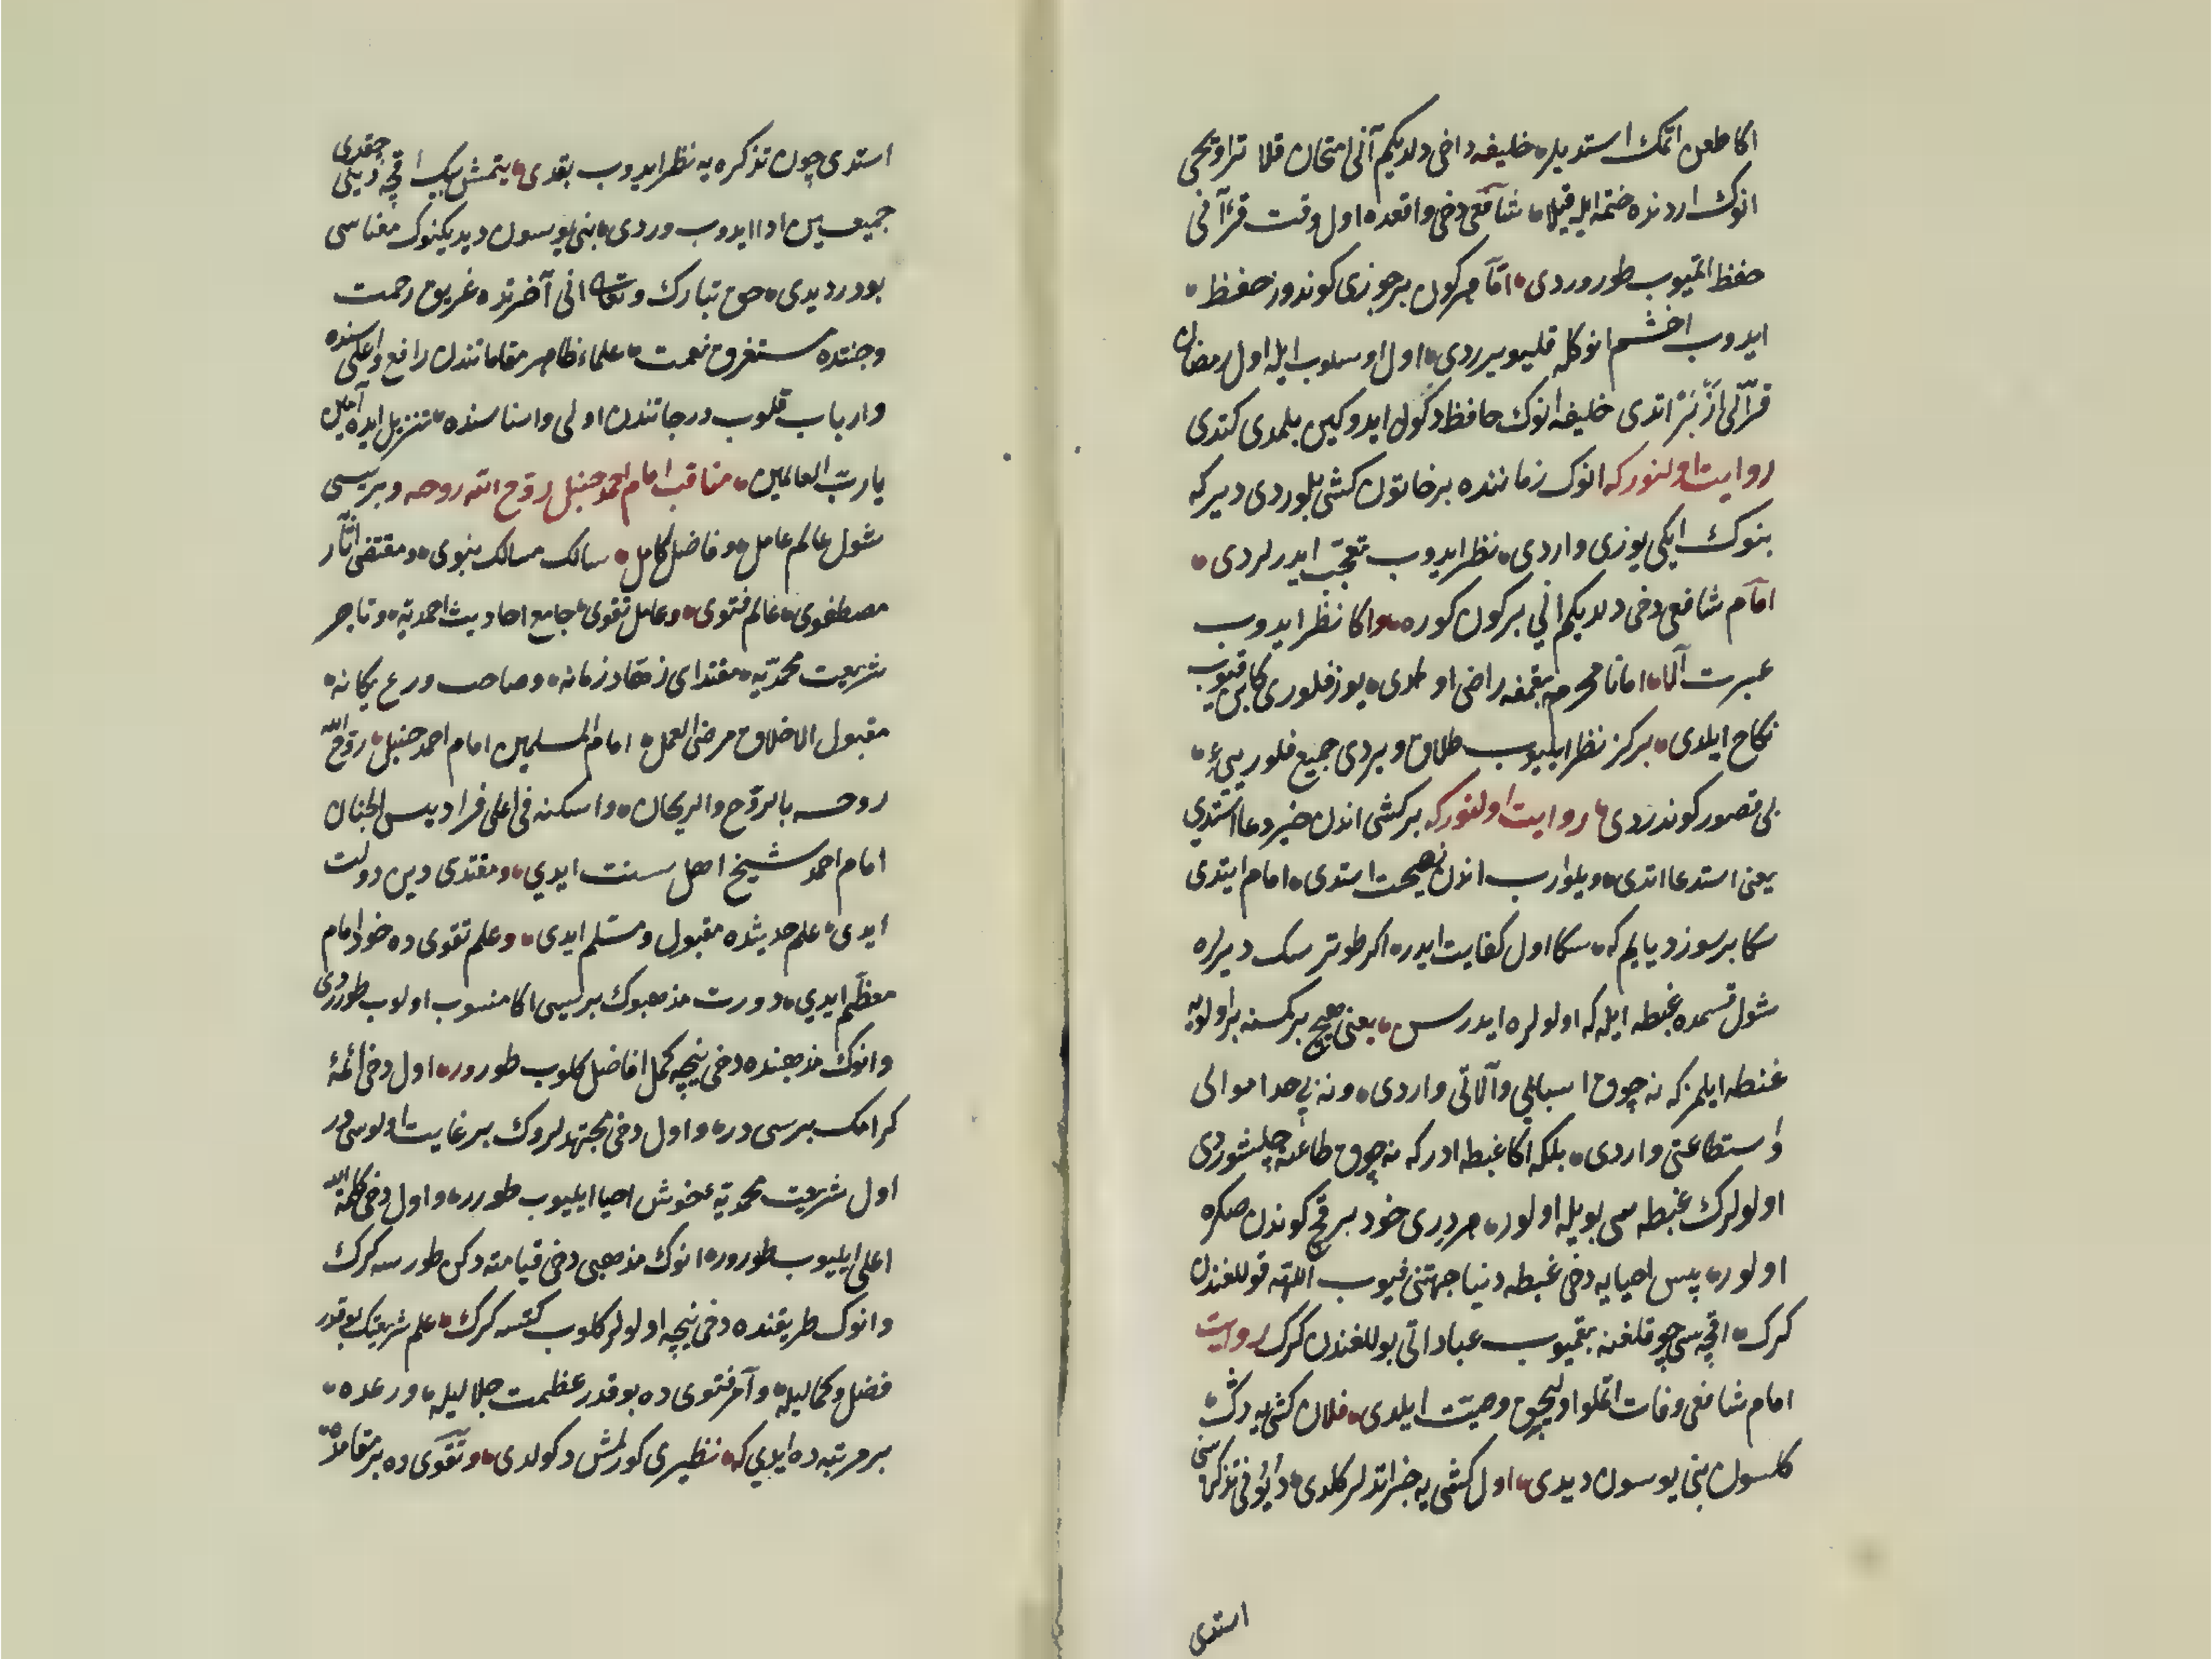 اكا طعن اتمك استديلر خليفه داخى دلديكم آنى امتحان قلا تراويحى
انوك اردنده ختمه ايله قيلا شافعى دخى واقعده اول وقت قرآنى
حفظ اتميوب طوروردى امّا هر كون بر جوزى كوندوز حفظ
ايدوب اخشم انوكله قليويرردى اول اوسلوب ايله اول رمضان
قرآنى ازبر اتدى خليفه انوك حافظ دكول ايدوكين بلمدى كتدى
روايت اولنور كه انوك زماننده بر خاتون كشى بلوردى ديرلر كه
بنوك ايكى يوزى واردى نظر ايدوب تعجّب ايدرلردى
امام شافعى دخى دلديكم انى بر كون كوره واكا نظر ايدوب
عبرت آلا امّا نا محرمه بقمغه راضى اولمدى يوز فلورى كابين قيوب
نكاح ايلدى بر كز نظر ايليوب طلاق ويردى جميع فلورييى
بى قصور كوندردى روايت اولنور كه بر كشى اندن خير دعا استدى
يعنى استدعا اتدى ويلوارب اندن نصيحت استدى امام ايتدى
سكا بر سوز ديايم كه سكا اول كفايت ايدر اكر طوترسك ديرلره
شول قسمده غبطه ايله كه اولولره ايدرسن يعنى هيچ بر كمسنه بر اولويه
غبطه ايلمز كه نه چوق اسبابى وآلاتى واردى ونه بى حد اموالى
واستطاعتى واردى بلكه اكا غبطه ادر كه نه چوق طاعته چلشوردى
اولولرك غبطه سى بويله اولور هر ديرى خود بر قچ كوندن صكره
اولور پس احيايه دخى غبطه دنيا جهتنى قيوب اللّه قوللغندن
كرك اقچه سى چوقلغنه بقميوب عباداتى بوللغندن كرك روايت
امام شافعى وفات اتملو اوليجق وصيّت ايلدى فلان كشى يه دكّ
كلسون بنى يوسون ديدى اول كشى يه خبر اتديلر كلدى ديوُنى تذكره سنى
استدى
استدى چون تذكره يه نظر ايدوب بقدى يتمش بيك اقچه دينى چقدى
جميعسين ادا ايدوب وردى بنى يوسون ديديكنوك معناسى
بودر ديدى حق تبارك وتعالى انى آخرتده غريق رحمت
وجنتده مستغرق نعمت علماء ظاهر مقاماتندن رافع واعلى سنده
وارباب قلوب درجاتندن اولى واسناسنده تنزيل ايده آمين
يا ربّ العالمين مناقب امام احمد حنبل روّح الله روحه وبريسى
شول عالم عامل وفاضل كامل سالك مسالك نبوى ومقتفى آثار
مصطفوى عالم فتوى وعامل تقوى جامع احاديث احمديّه وتاجر
شريعت محمّديّه مقتداى زهّاد زمانه وصاحب ورع يكانه
مقبول الاخلاق مرضى العمل امام المسلمين امام احمد حنبل روّح الله
روحه بالروّح والريحان واسكنه فى اعلى فراديس الجنان
امام احمد شيخ اهل سنت ايدي ومقتدى دين دولت
ايدى علم حديثده مقبول ومسّلم ايدى وعلم تقوى ده خود امام
معظّم ايدي دورت مذهبوك بريسى اكا منسوب اولوب طوررّدى
وانوك مذهبنده دخى نيچه كمل افاضل كلوب طورور اول دخى ائمّهٔ
كرامك بريسى در واول دخى مجتهدلروك بر غايت اولوسى در
اول شريعت محمديه عخوش احيا ايليوب طورر واول دخى كلمة الله
اعلى ايليوب طورور انوك مذهبى دخى قيامته دكن طورسه كرك
وانوك طريقنده دخى نيچه اولولر كلوب كتسه كرك علم شريعتك بوقدر
فضل وكماليله وآمر فتوى ده بوقدر عظمت جلاليله ورعده
بر مرتبه ده ايدي كه نظيرى كورلمش دكولدى وتقوى ده بر مقامده